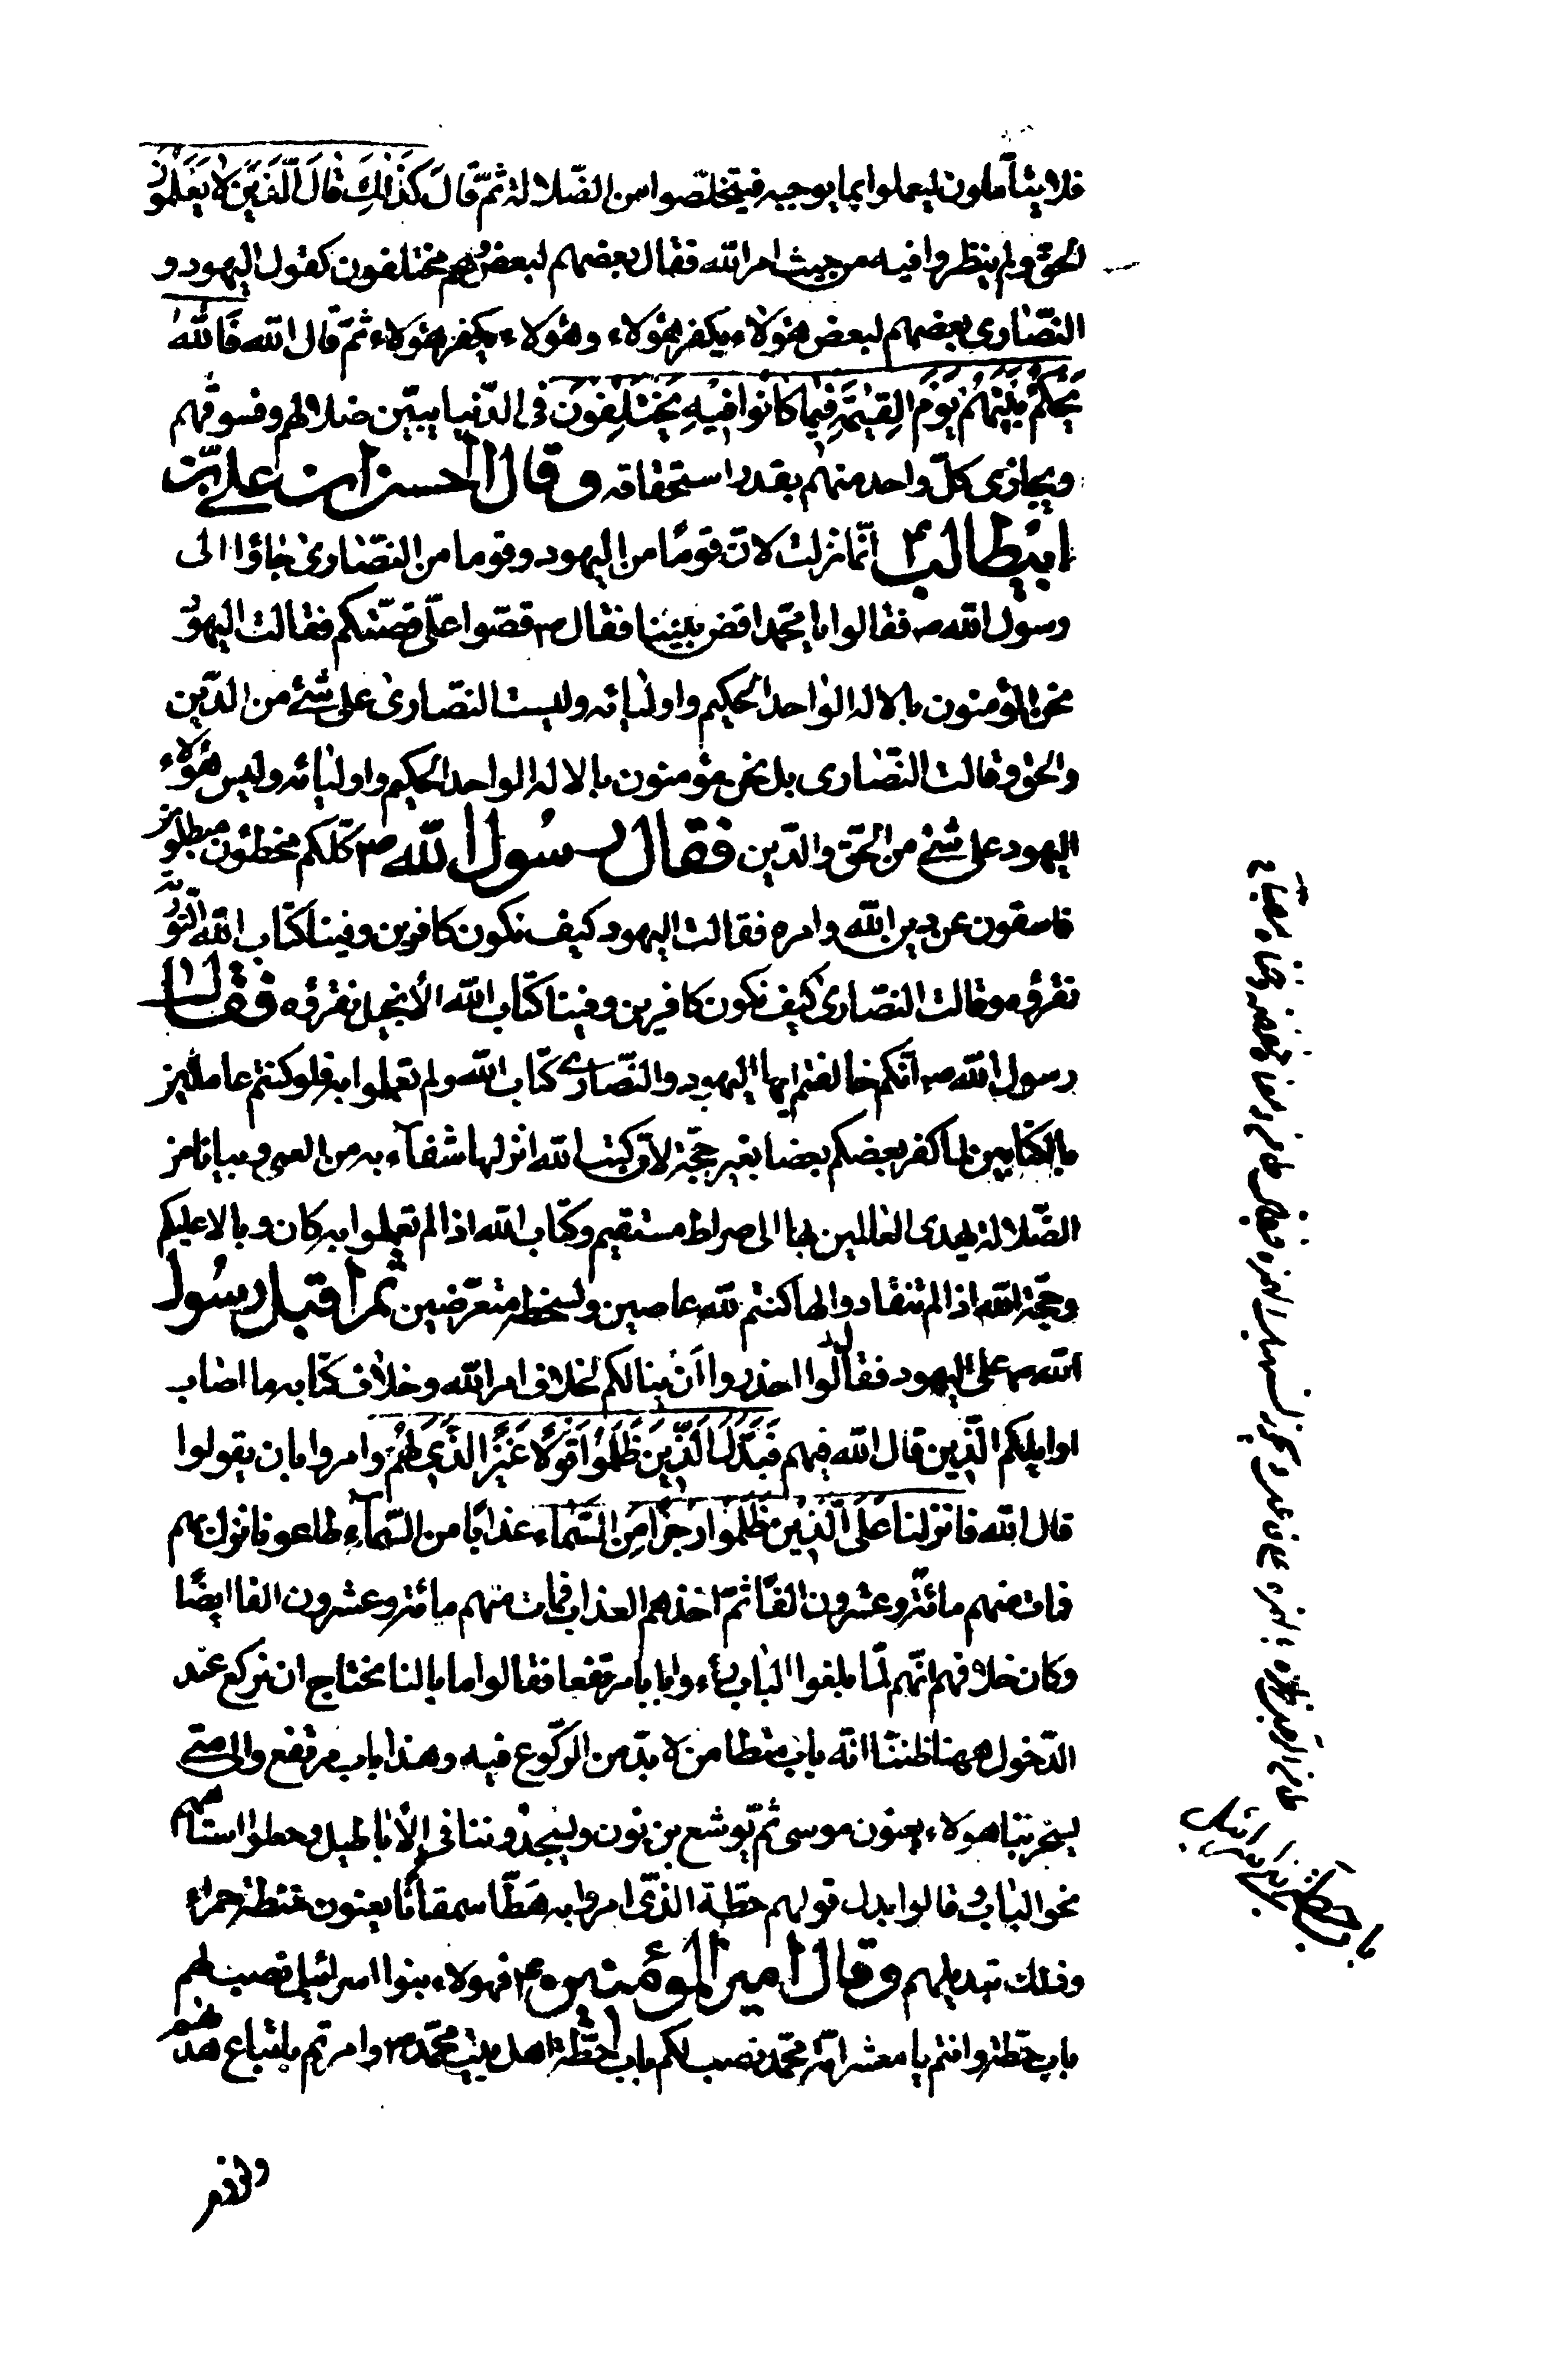 فلا يتأملون ليعملوا بما يوجبه فيتخلّصوا من الضّلالة ثمّ قَالَ كَذٰلِكَ قَالَ الَّذِينَ لَا يَعْلَمُونَ
الحقّ ولم ينظروا فيه من حيث امر الله فقال بعضهم لبعض وهم مختلفون كقول اليهود و
النّصارى بعضهم لبعض هؤلاء يكفر هؤلاء وهؤلاء يكفر هؤلاء ثمّ قال الله فَاللهُ
يَحْكُمُ بَيْنَهُمْ يَوْمَ الْقِيٰمَةِ فِيمَا كَانُوا فِيهِ يَخْتَلِفُونَ فى الدّنيا يبيّن ضلالهم وفسوقهم
ويجازى كلّ واحد منهم بقدر استحقاقه وقال الحسن ابن علىّ بن
ابيطالب ع انّما نزلت لانّ قومًا من اليهود وقوما من النّصارى جاؤا الى
رسول الله ص فقالوا يا محمّد اقض بيننا فقال ص قصّوا علّى قصّتكم فقالت اليهود
نحن المؤمنون بالاله الواحد الحكيم واوليائه وليست النّصارى على شئ من الدّين
والحق وقالت النّصارى بل نحن مؤمنون بالاله الواحد الحكيم واوليائه وليس هؤلاء
اليهود على شئ من الحقّ والدّين فقال رسول الله ص كلّكم مخطئون مبطلون
فاسقون عن دين الله وامره فقالت اليهود كيف نكون كافرين وفينا كتاب الله التّورية
نقرؤه وقالت النّصارى كيف نكون كافرين وفينا كتاب الله الأنجيل نقرؤه فقال
رسول الله ص انّكم خالفتم ايها اليهود والنّصارى كتاب الله ولم تعملوا به فلو كنتم عاملين
بالكتابين لما كفر بعضكم بعضا بغير حجّة لانّ كتب الله انزلها شفآء به من العمى وبيانا من
الضّلالة يهدى العالمين بها الى صراط مستقيم وكتاب الله اذا لم تعملوا به كان وبالا عليكم
وحجّة الله اذا لم تنقادوا لها كنتم لله عاصين ولسخطه متعرّضين ثم اقبل رسول
الله ص على اليهود فقال احذروا ان ينالكم لخلاف امر الله وخلاف كتابه ما اصاب
اوايلكم الّذين قال الله فيهم فَبَدَّلَ الَّذِينَ ظَلَمُوا قَوْلًا غَيْرَ الَّذِي لهم وامروا بان يقولوا
قال الله فانزلنا عَلَى الَّذِينَ ظَلَمُوا رِجْزًا مِنَ السَّمَآءِ عذابًا من السّمآء طاعونا نزل بهم
فمات منهم مائة وعشرون الفًا ثمّ اخذهم العذاب فمات منهم مائة وعشرون الفا ايضًا
وكان خلافهم انّهم لمّا بلغوا الباب رأوا بابا مرتفعا فقالوا ما بالنا نحتاج ان نركع عند
الدّخول ههنا ظننّا انّه باب متطامن لا بدّ من الرّكوع فيه وهذا باب مرتفع والى متى
يسخر بنا هولاء يعنون موسى ثم يوشع بن نون ويسجدوننا فى الأباطيل وجعلوا استاههم
نحو الباب وقالوا بدل قولهم حطّة الّذى امروا به هَطّا سمقانا يعنون حنطة حمراء
وذلك تبديلهم وقال امير المؤمنين ع فهولاء بنوا اسرائيل نصب لهم
باب حطّة وانتم يا معشر امّة محمّد نصب لكم باب حطّة اهل بيت محمّد ص وامرتم باتّباع هديهم